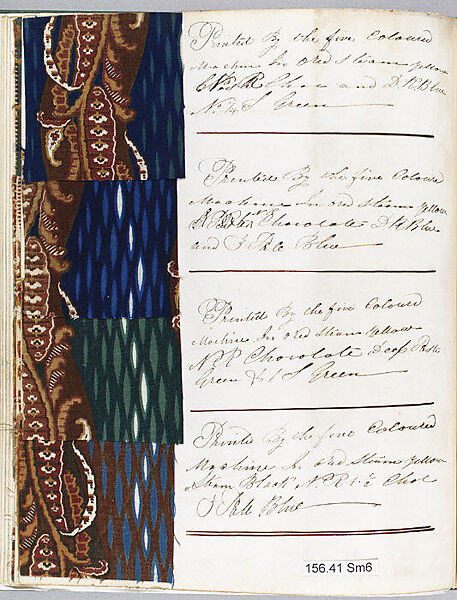 Printed By the five Coloured
Machine In red Steam Yellow
N R Choc and D R Blue
No 4 S Green
Printed By the five Coloure
Machine In red Steam Yellow
Chocolate D R Blue
and 3 Pale Blue
Printed By the five Coloured
Machine In red Steam Yellow
N R Chocolate Deep
Green & 1 S Green
Printed By the five Coloured
Machine In red Steam Yellow
Steam Black N R 1½ Choc
3 Pale Blue
156.41 Sm6